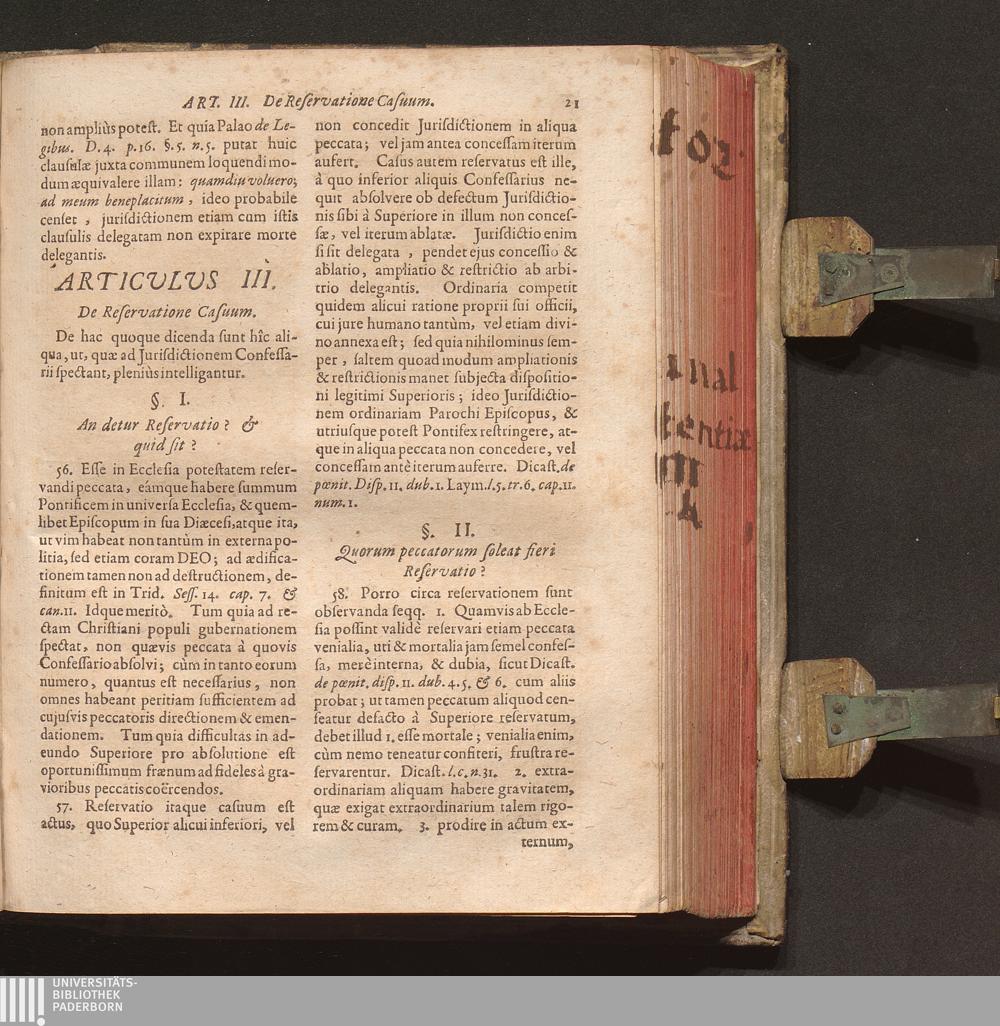 ART. III. De Reſervatione Caſuum. 21
non ampliùs poteſt. Et quia Palao de Le-
gibus. D. 4. p. 16. §. 5. n. 5. putat huic
clauſulæ juxta communem loquendi mo-
dum æquivalere illam: quamdiu voluero;
ad meum beneplacitum, ideo probabile
cenſet, jurisdictionem etiam cum iſtis
clauſulis delegatam non expirare morte
delegantis.
ARTICULVS III.
De Reſervatione Caſuum.
De hac quoque dicenda ſunt hîc ali-
qua, ut, quæ ad Jurisdictionem Confeſſa-
rii ſpectant, pleniùs intelligantur.
§. I.
An detur Reſervatio? &
quid ſit?
56. Eſſe in Eccleſia poteſtatem reſer-
vandi peccata, eámque habere ſummum
Pontificem in univerſa Eccleſia, & quem-
libet Epiſcopum in ſua Diæceſi, atque ita,
ut vim habeat non tantùm in externa po-
litia, ſed etiam coram DEO; ad ædifica-
tionem tamen non ad deſtructionem, de-
finitum eſt in Trid. Seſſ. 14. cap. 7. &
can. 11. Idque meritò. Tum quia ad re-
ctam Chriſtiani populi gubernationem
ſpectat, non quævis peccata à quovis
Confeſſario abſolvi; cùm in tanto eorum
numero, quantus eſt neceſſarius, non
omnes habeant peritiam ſufficientem ad
cujuſvis peccatoris directionem & emen-
dationem. Tum quia difficultas in ad-
eundo Superiore pro abſolutione eſt
oportuniſſimum frænum ad fideles à gra-
vioribus peccatis coërcendos.
57. Reſervatio itaque caſuum eſt
actus, quo Superior alicui inferiori, vel
non concedit Juriſdictionem in aliqua
peccata; vel jam antea conceſſam iterum
aufert. Caſus autem reſervatus eſt ille,
à quo inferior aliquis Confeſſarius ne-
quit abſolvere ob defectum Juriſdictio-
nis ſibi à Superiore in illum non conceſ-
ſæ, vel iterum ablatæ. Juriſdictio enim
ſi ſit delegata, pendet ejus conceſſio &
ablatio, ampliatio & reſtrictio ab arbi-
trio delegantis. Ordinaria competit
quidem alicui ratione proprii ſui officii,
cui jure humano tantùm, vel etiam divi-
no annexa eſt; ſed quia nihilominus ſem-
per, ſaltem quoad modum ampliationis
& reſtrictionis manet ſubjecta diſpoſitio-
ni legitimi Superioris; ideo Juriſdictio-
nem ordinariam Parochi Epiſcopus, &
utriuſque poteſt Pontifex reſtringere, at-
que in aliqua peccata non concedere, vel
conceſſam antè iterum auferre. Dicaſt. de
pœnit. Diſp. 11. dub. 1. Laym. l. 5. tr. 6. cap. 11.
num. 1.
§. II.
Quorum peccatorum ſoleat fieri
Reſervatio?
58. Porro circa reſervationem ſunt
obſervanda ſeqq. 1. Quamvis ab Eccle-
ſia poſſint validè reſervari etiam peccata
venialia, uti & mortalia jam ſemel confeſ-
ſa, merè interna, & dubia, ſicut Dicaſt.
de pœnit. diſp. 11. dub. 4. 5. & 6. cum aliis
probat; ut tamen peccatum aliquod cen-
ſeatur defacto à Superiore reſervatum,
debet illud 1. eſſe mortale; venialia enim,
cùm nemo teneatur confiteri, fruſtra re-
ſervarentur. Dicaſt. l. c. n. 31. 2. extra-
ordinariam aliquam habere gravitatem,
quæ exigat extraordinarium talem rigo-
rem & curam. 3. prodire in actum ex-
ternum,
inal
tentiæ
UNIVERSITÄTS-
BIBLIOTHEK
PADERBORN